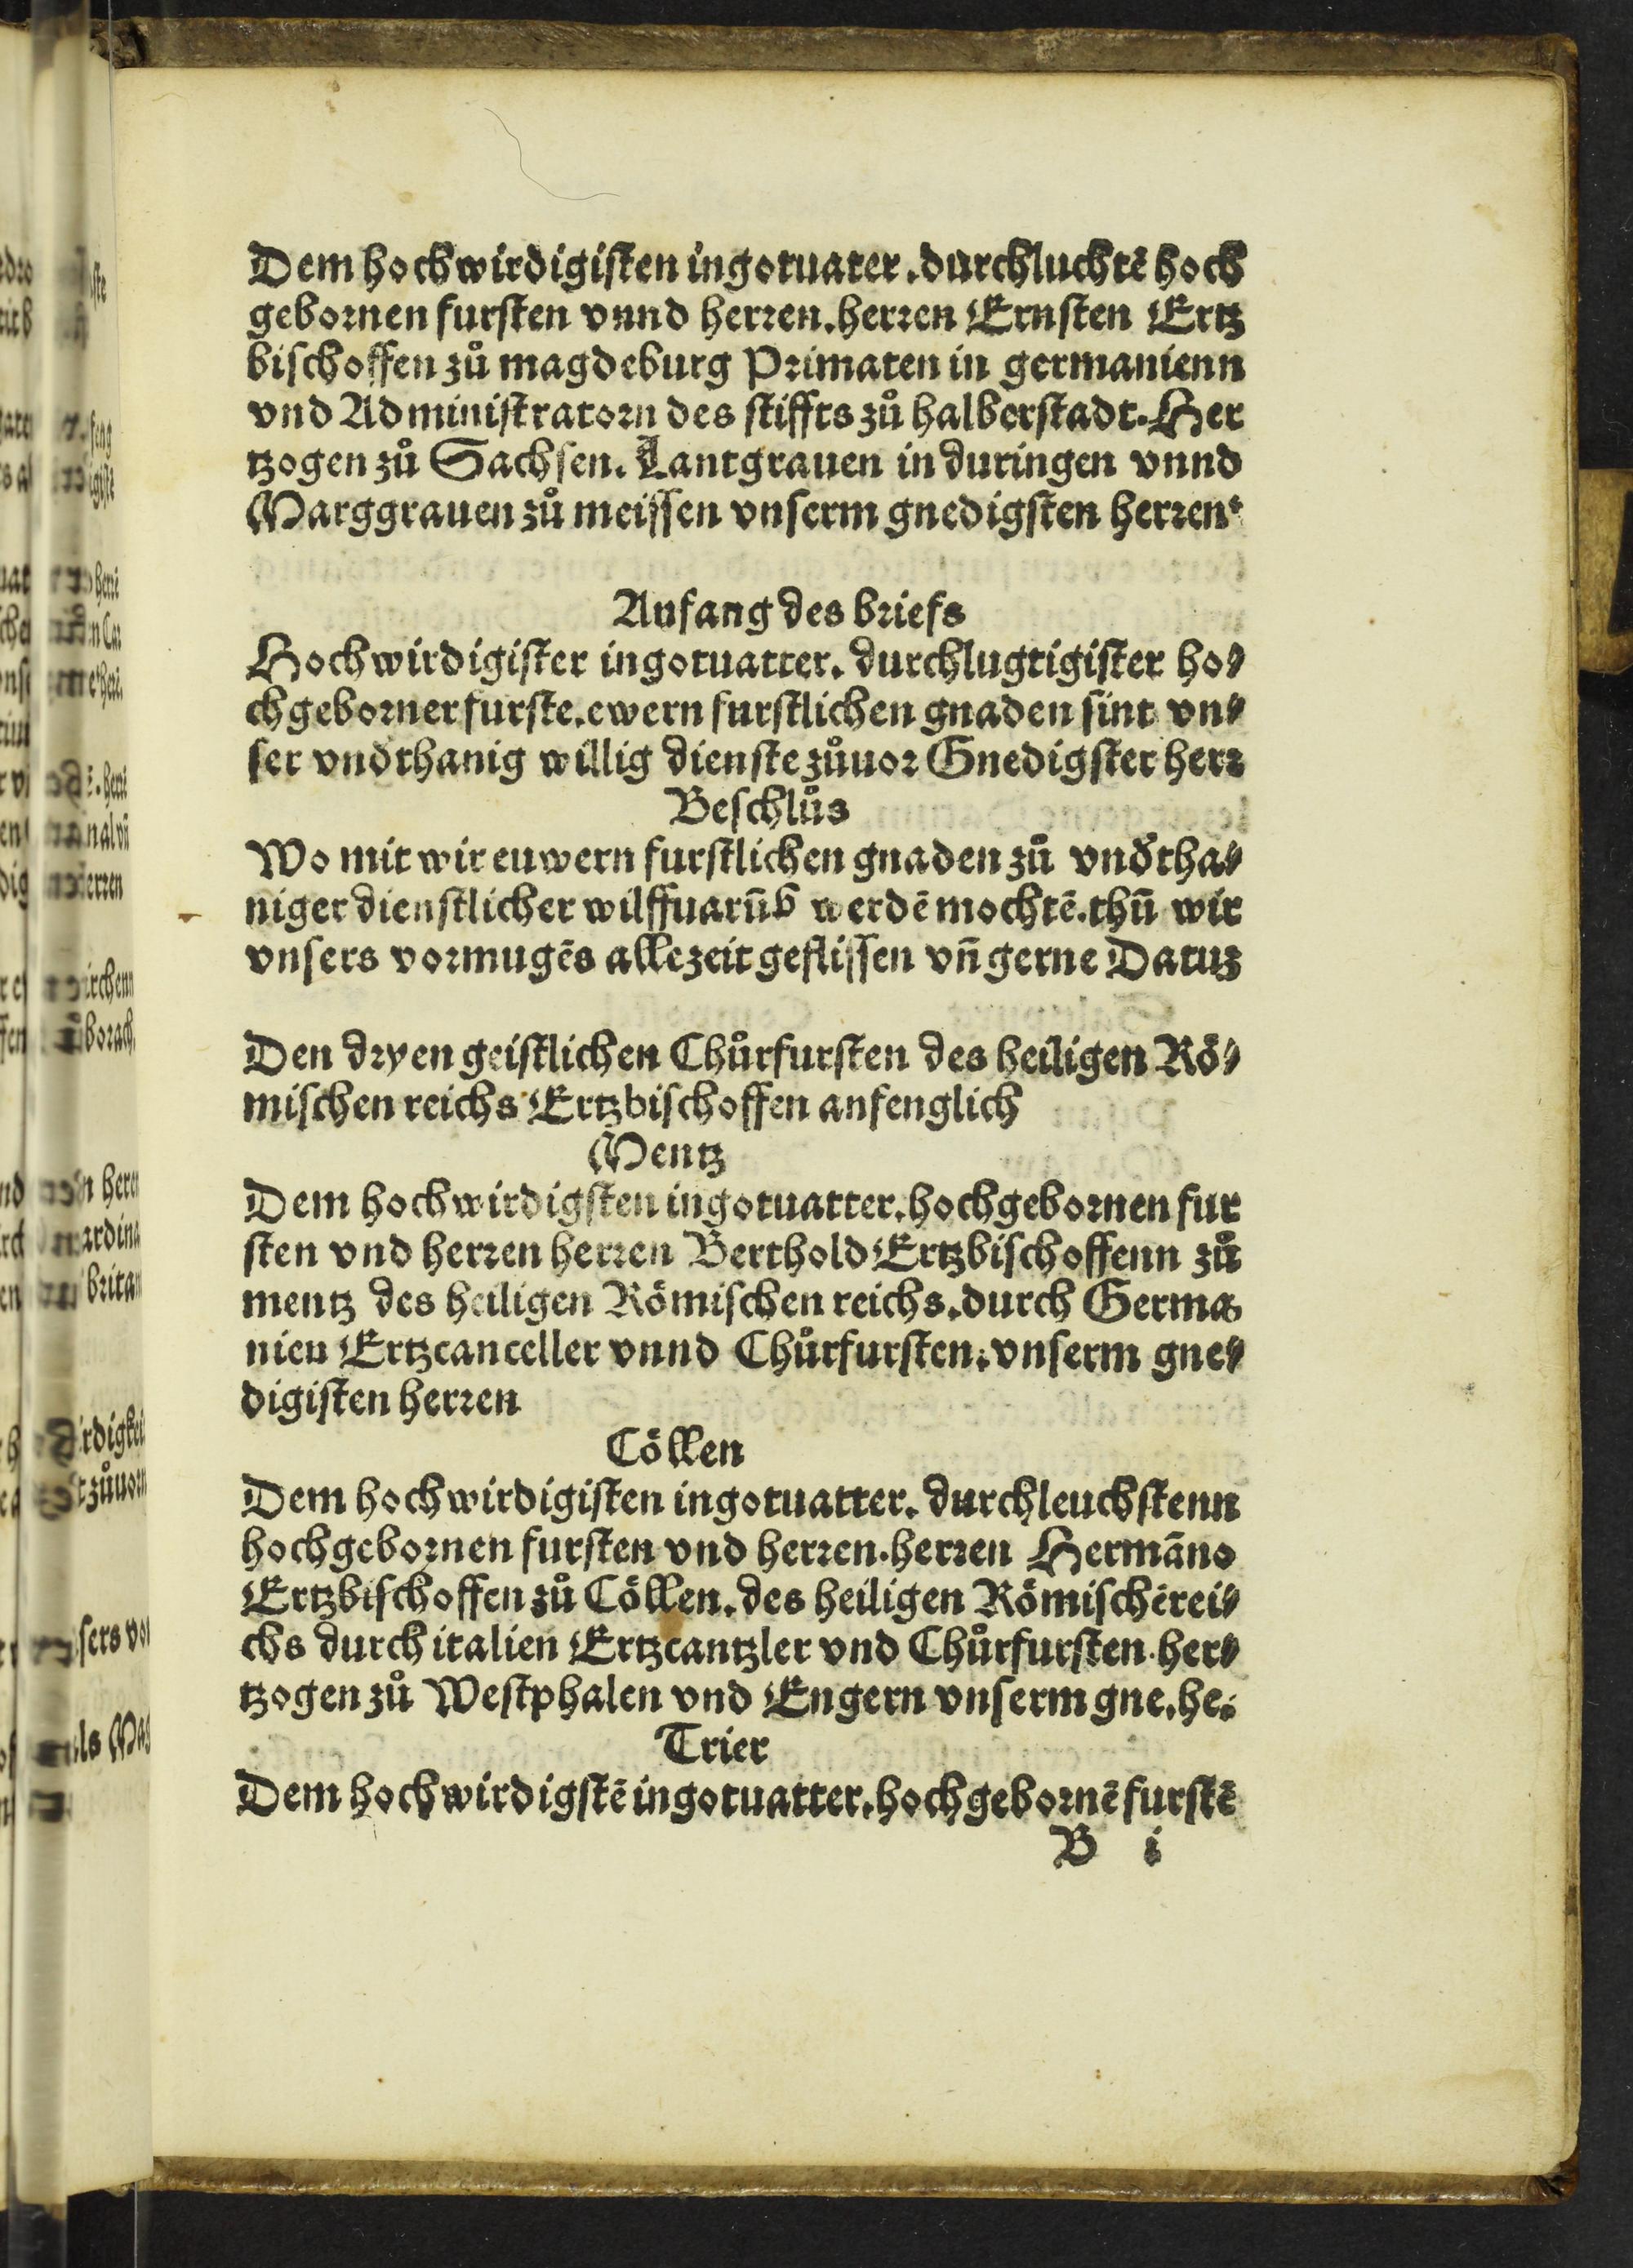 Dem hochwirdigisten ingotuater.durchluchtē hoch
gebornen fursten vnnd herren.herren Ernsten Ertz
bischoffen zů magdeburg Primaten in germanienn
vnd Administratorn des stiffts zů halberstadt.Her
tzogen zů Sachsen. Lantgrauen in duringen vnnd
Marggrauen zů meissen vnserm gnedigsten herren.
Anfang des briefs
Hochwirdigister ingotuatter. durchlugtigister ho⸗
chgeborner furste.ewern furstlichen gnaden sint vn⸗
ser vndthanig willig dienste zůuor Gnedigster herr
Beschlůs
Wo mit wir euwern furstlichen gnaden zů vnd̓tha⸗
niger dienstlicher wilffuarūb werdē mochtē.thū wir
vnsers vormugēs allezeit geflissen vn̄ gerne Datuz
Den dryen geistlichen Chůrfursten des heiligen Rö⸗
mischen reichs Ertzbischoffen anfenglich
Mentz
Dem hochwirdigsten ingotuatter.hochgebornen fur
sten vnd herren herren Berthold Ertzbischoffenn zů
mentz des heiligen Römischen reichs.durch Germa
nien Ertzcanceller vnnd Chůrfursten.vnserm gne⸗
digisten herren
Cöllen
Dem hochwirdigisten ingotuatter. durchleuchstenn
hochgebornen fursten vnd herren.herren Hermāno
Ertzbischoffen zů Cöllen.des heiligen Römischērei⸗
chs durch italien Ertzcantzler vnd Chůrfursten.her⸗
tzogen zů Westphalen vnd Engern vnserm gne.he.
Trier
Dem hochwirdigstē ingotuatter.hochgebornē furstē
B i